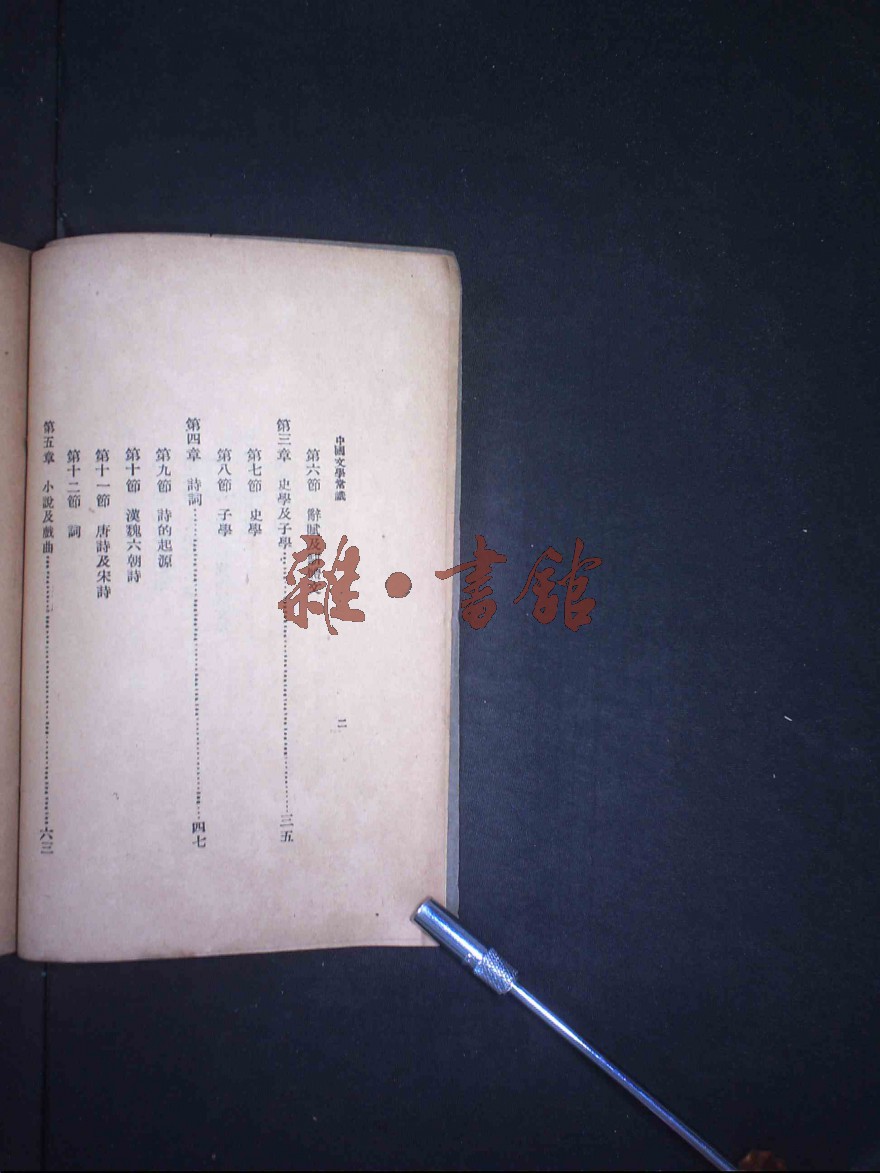 中國文學常識
二
第六節 辭賦及
第三章 史學及子學……三五
第七節 史學
第八節 子學
第四章 詩詞……四七
第九節 詩的起源
第十節 漢魏六朝詩
第十一節 唐詩及宋詩
第十二節 詞
第五章 小說及戲曲……六三
雜·書館